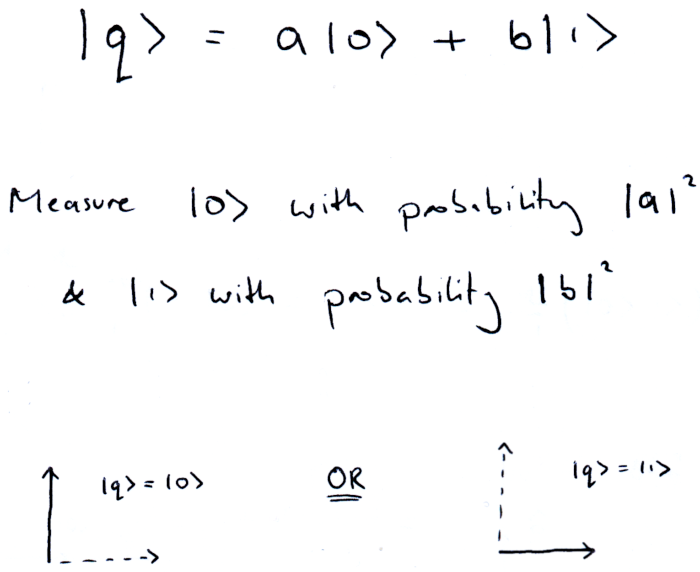 |q> = a|0> + b|1>
Measure |0> with probability |a|²
& |1> with probability |b|²
|q> = |0> OR |q> = |1>